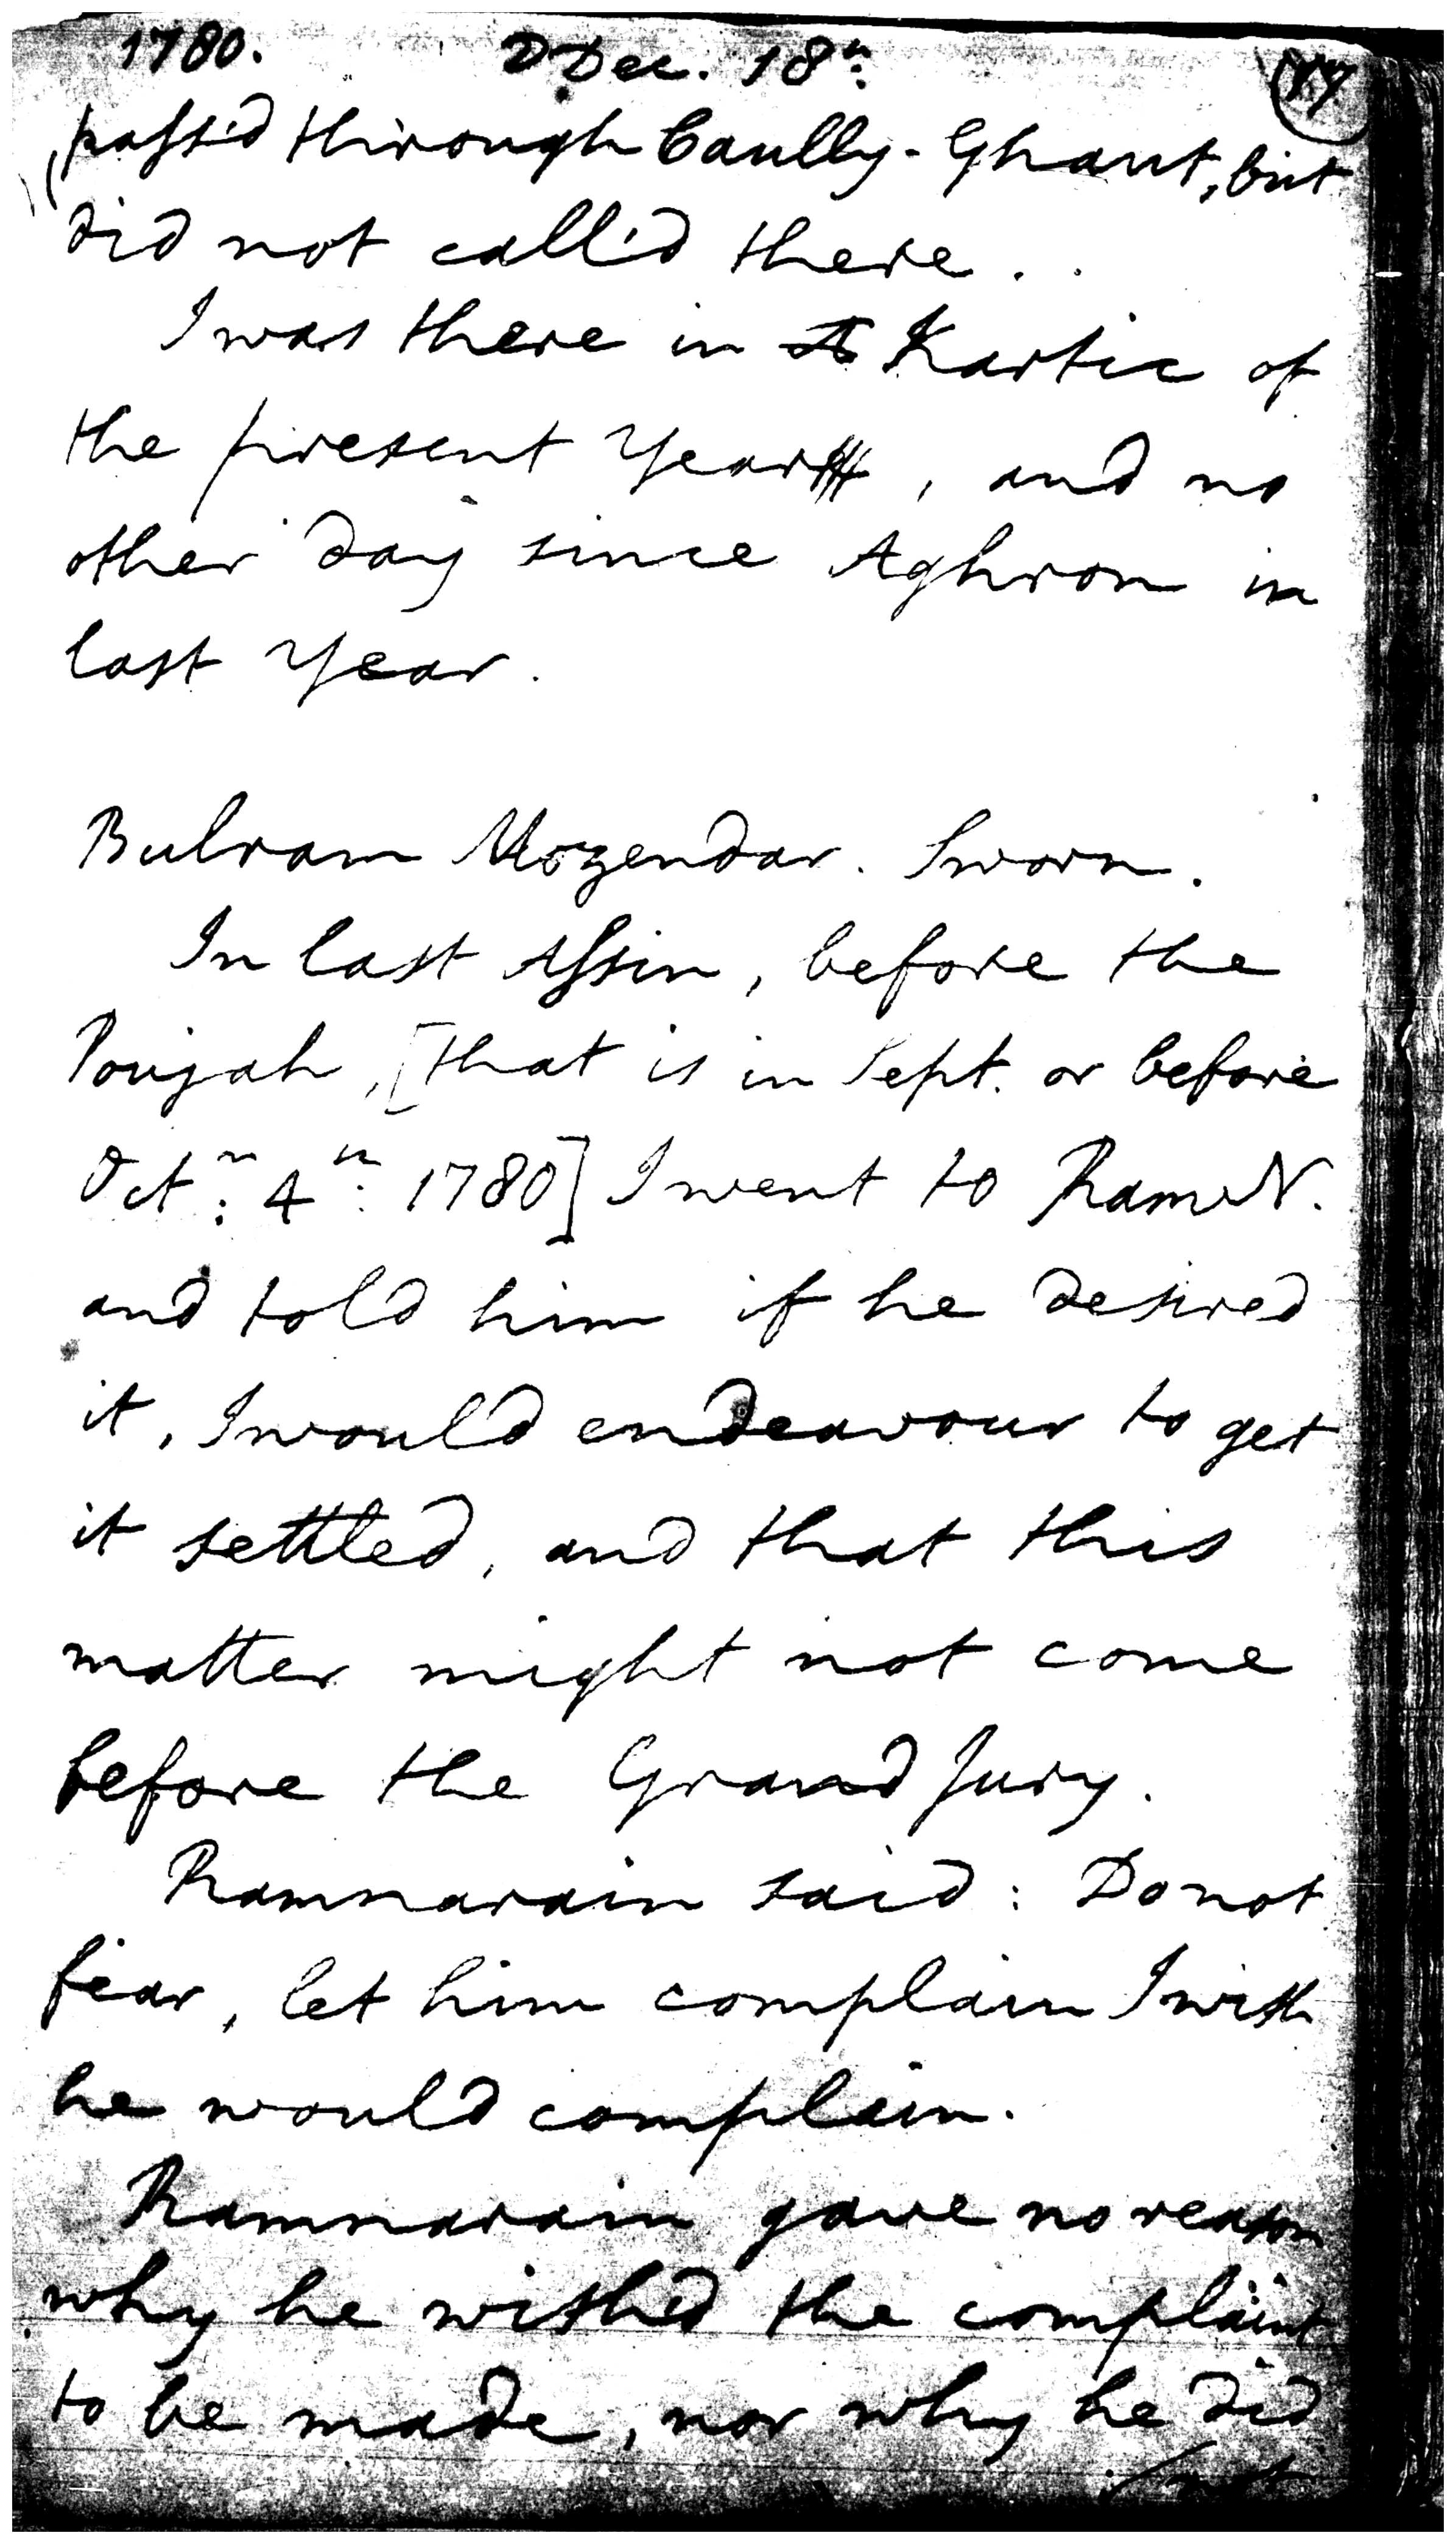 1780. Dec. 18th
pass'd through Caully-Ghaut, but
did not call'd there.
I was there in Kartic of
the present Year, and no
other day since Aghron in
last Year.
Bulram Mozendar. Sworn.
In last Assin, before the
Poujah, [that is in Sept. or before
Octr. 4th. 1780] I went to Ram N.
and told him if he desired
it, I would endeavour to get
it settled, and that this
matter might not come
before the Grand Jury.
Ramnarain said: Do not
fear, let him complain I wish
he would complain.
Ramnarain gave no reason
why he wished the complaint
to be made, nor why he did
/not